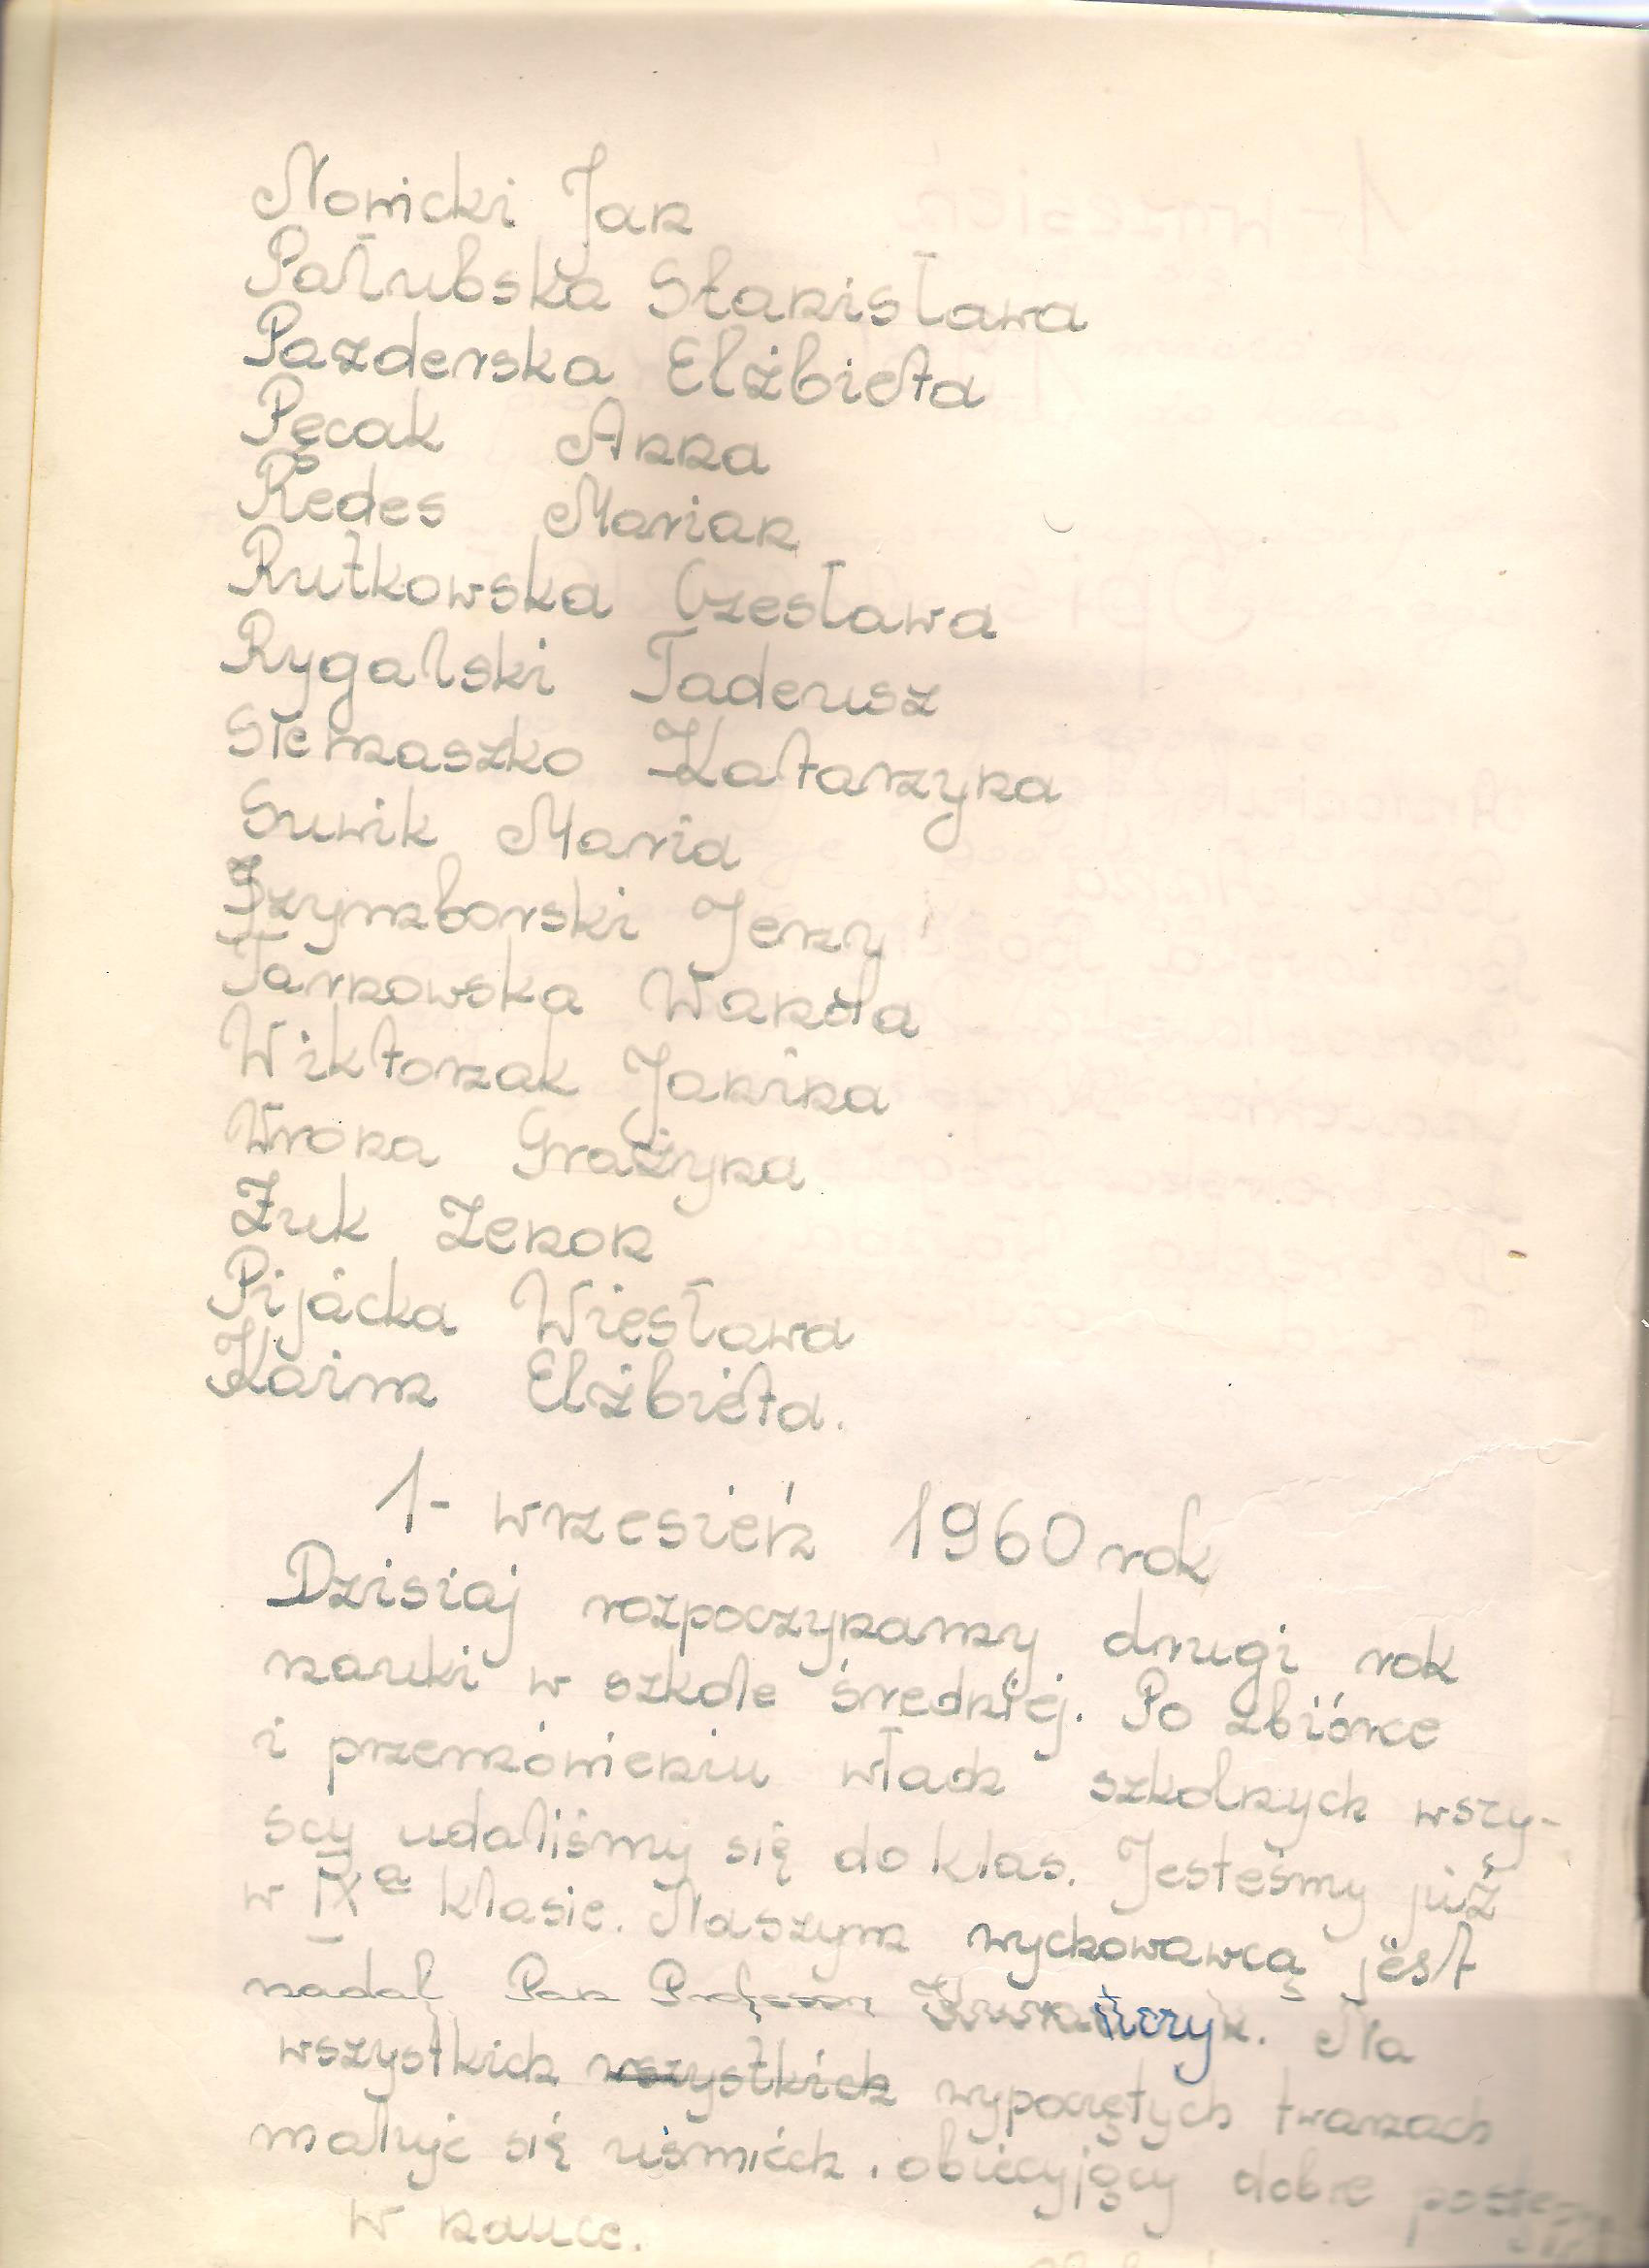 Nowicki Jan
Pałubska Stanisława
Pazderska Elżbieta
Pęcak Anna
Redes Marian
Rutkowska Czesława
Rygalski Tadeusz
Siemaszko Katarzyna
Suwik Maria
Szymborski Jerzy
Tarnowska Wanda
Wiktorzak Janina
Wrona Grażyna
Żuk Zenon
Pijácka Wiesława
Kaim Elżbieta.
1- wrzesień 1960 rok
Dzisiaj rozpoczynamy drugi rok
nauki w szkole średniej. Po zbiórce
i przemówieniu władz szkolnych wszy-
scy udaliśmy się do klas. Jesteśmy już
w IXa klasie. Naszym wychowawcą jest
nadal Pan Profesor. Na
wszystkich wszystkich wypoczętych twarzach
maluje się uśmiech, obiecyjący dobre postępy
w nauce.